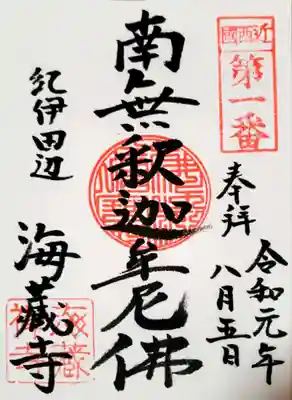 近西國
第一番
奉拝
令和元年
八月五日
南無釈迦牟尼佛
紀伊田辺
海蔵寺